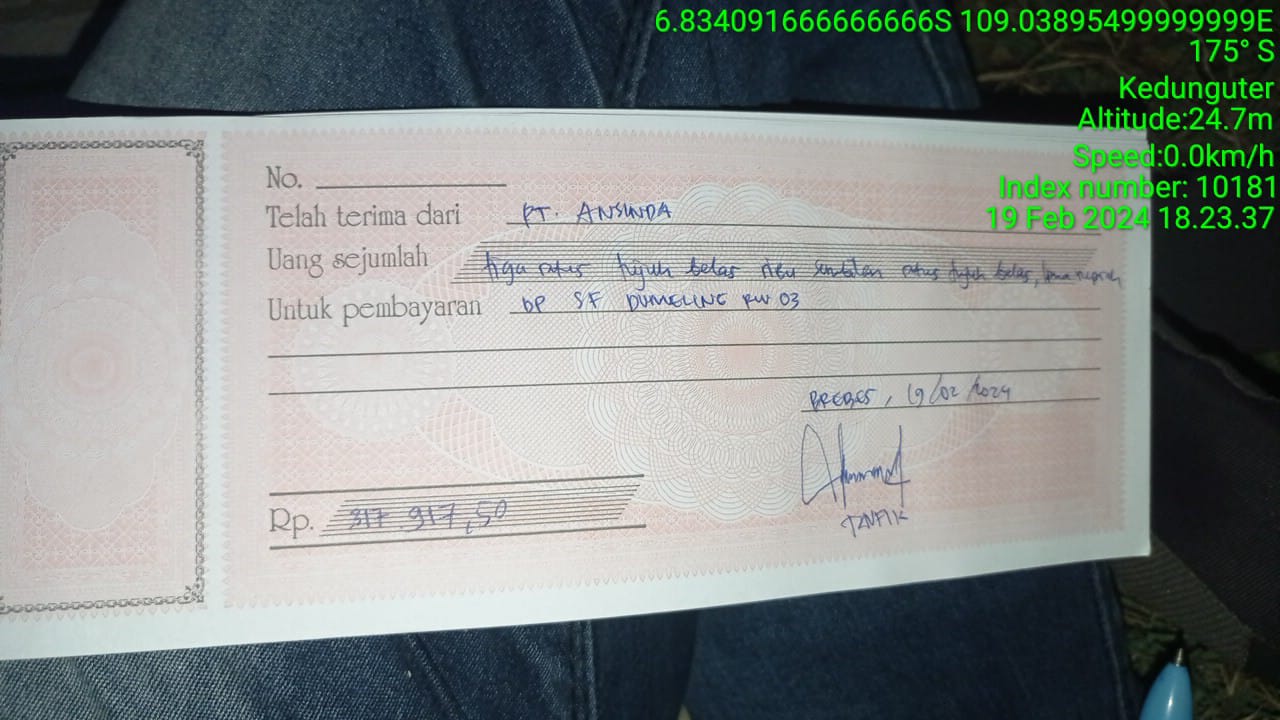 6.834091666666666S 109.03895499999999E
175° S
Kedunguter
Altitude:24.7m
Speed:0.0km/h
Index number: 10181
19 Feb 2024 18.23.37
No.
Telah terima dari PT. ANSINDA
Uang sejumlah tiga ratus tujuh belas ribu sembilan ratus tujuh belas, lima rupiah
Untuk pembayaran DP SF DUMELING RW 03
BREBES, 19/02/2024
Rp. 317.917,50
TAUFIK